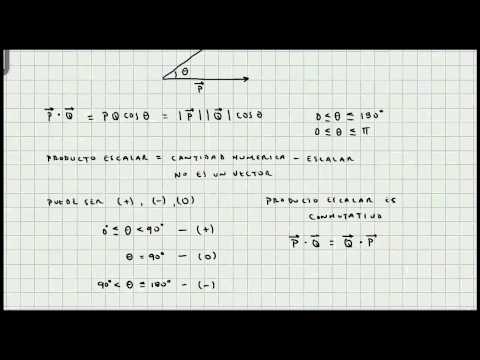 θ
P⃗
P⃗ · Q⃗ = PQ cos θ = |P⃗||Q⃗| cos θ
0 ≤ θ ≤ 180°
0 ≤ θ ≤ π
PRODUCTO ESCALAR = CANTIDAD NUMERICA – ESCALAR
NO ES UN VECTOR
PUEDE SER (+), (-), (0)
0° ≤ θ < 90° – (+)
θ = 90° – (0)
90° < θ ≤ 180° – (-)
PRODUCTO ESCALAR ES
CONMUTATIVO
P⃗ · Q⃗ = Q⃗ · P⃗